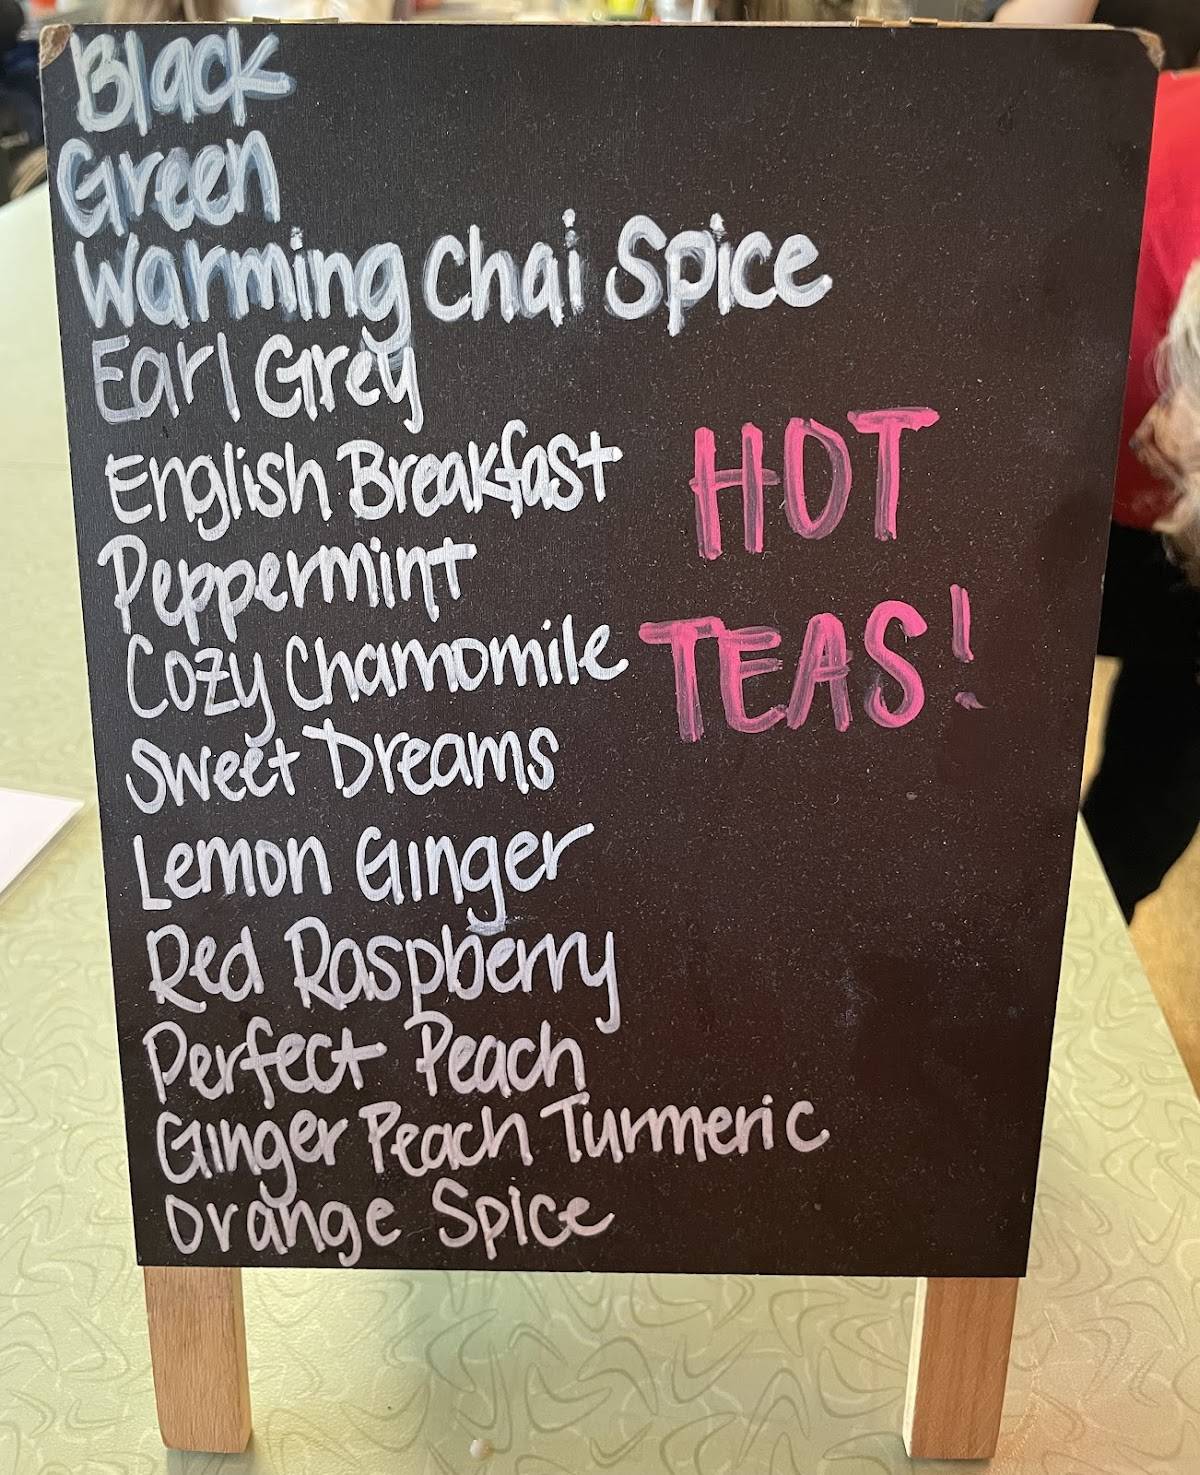 Black
Green
Warming Chai Spice
Earl Grey
English Breakfast
Peppermint
Cozy Chamomile
Sweet Dreams
Lemon Ginger
Red Raspberry
Perfect Peach
Ginger Peach Turmeric
Orange Spice
HOT
TEAS!